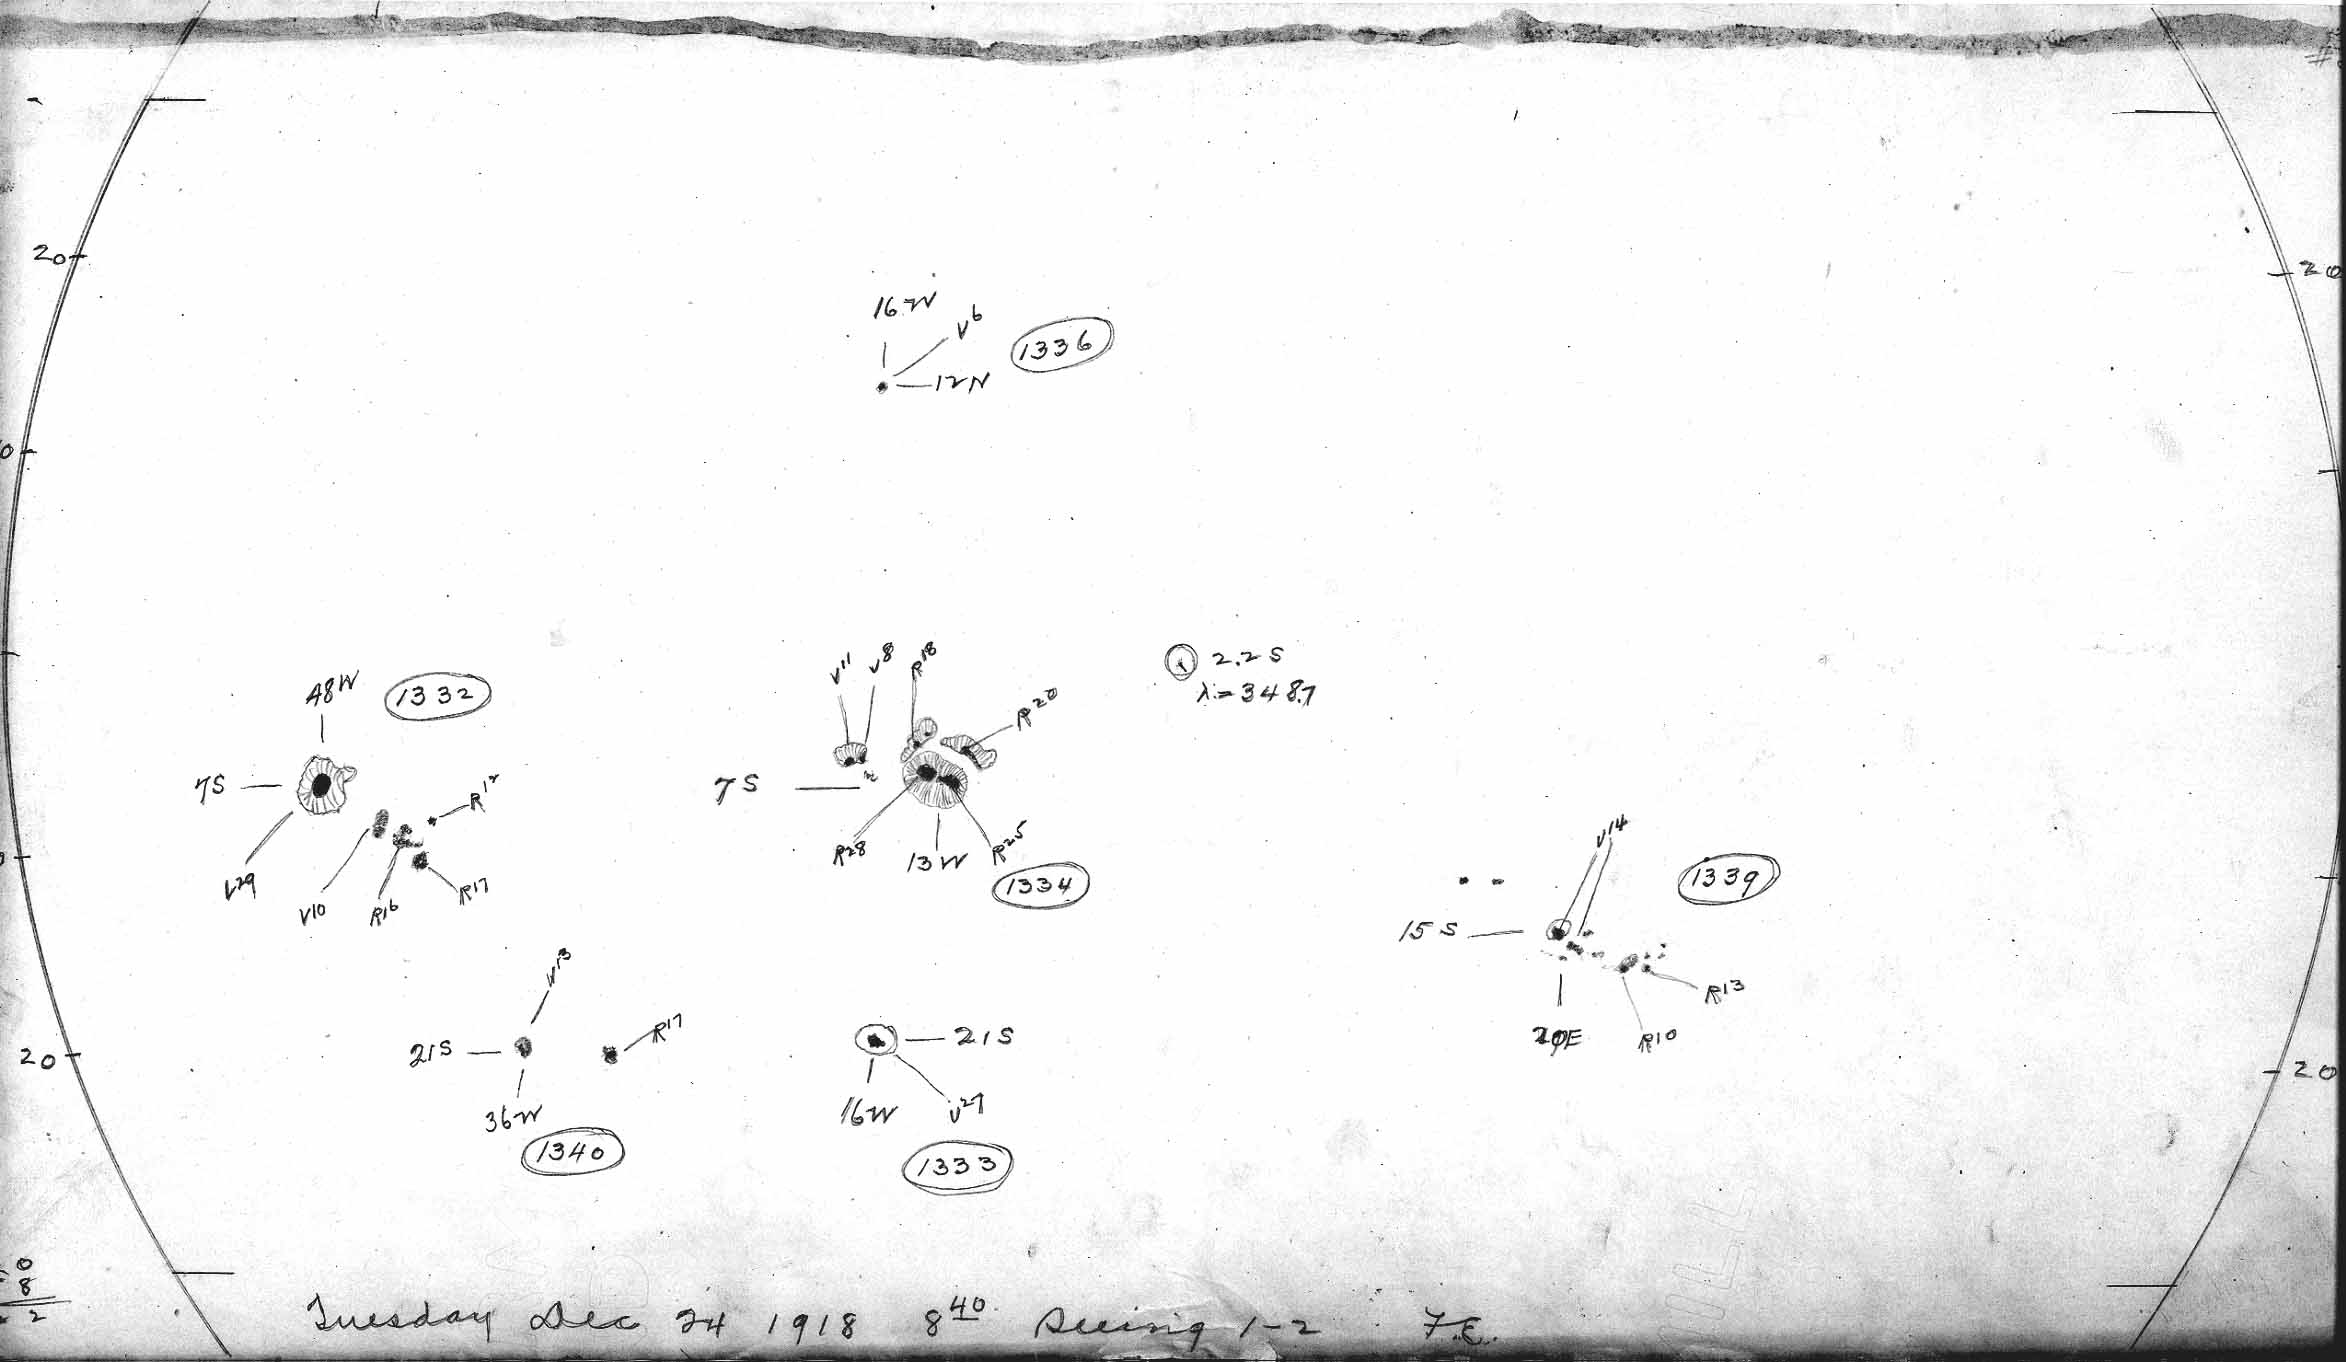 20
20
16W
V6
1336
12N
V11
V8
R18
2.2S
λ=348.7
48W
1332
R20
7S
7S
R12
R28
13W
R25
1334
V14
1339
V29
V10
R16
R17
15S
V13
R13
21S
R17
21S
20
20
R10
36W
16W
V27
1340
1333
0
8
2
Tuesday Dec 24 1918 8 40 Seeing 1-2 F.E.